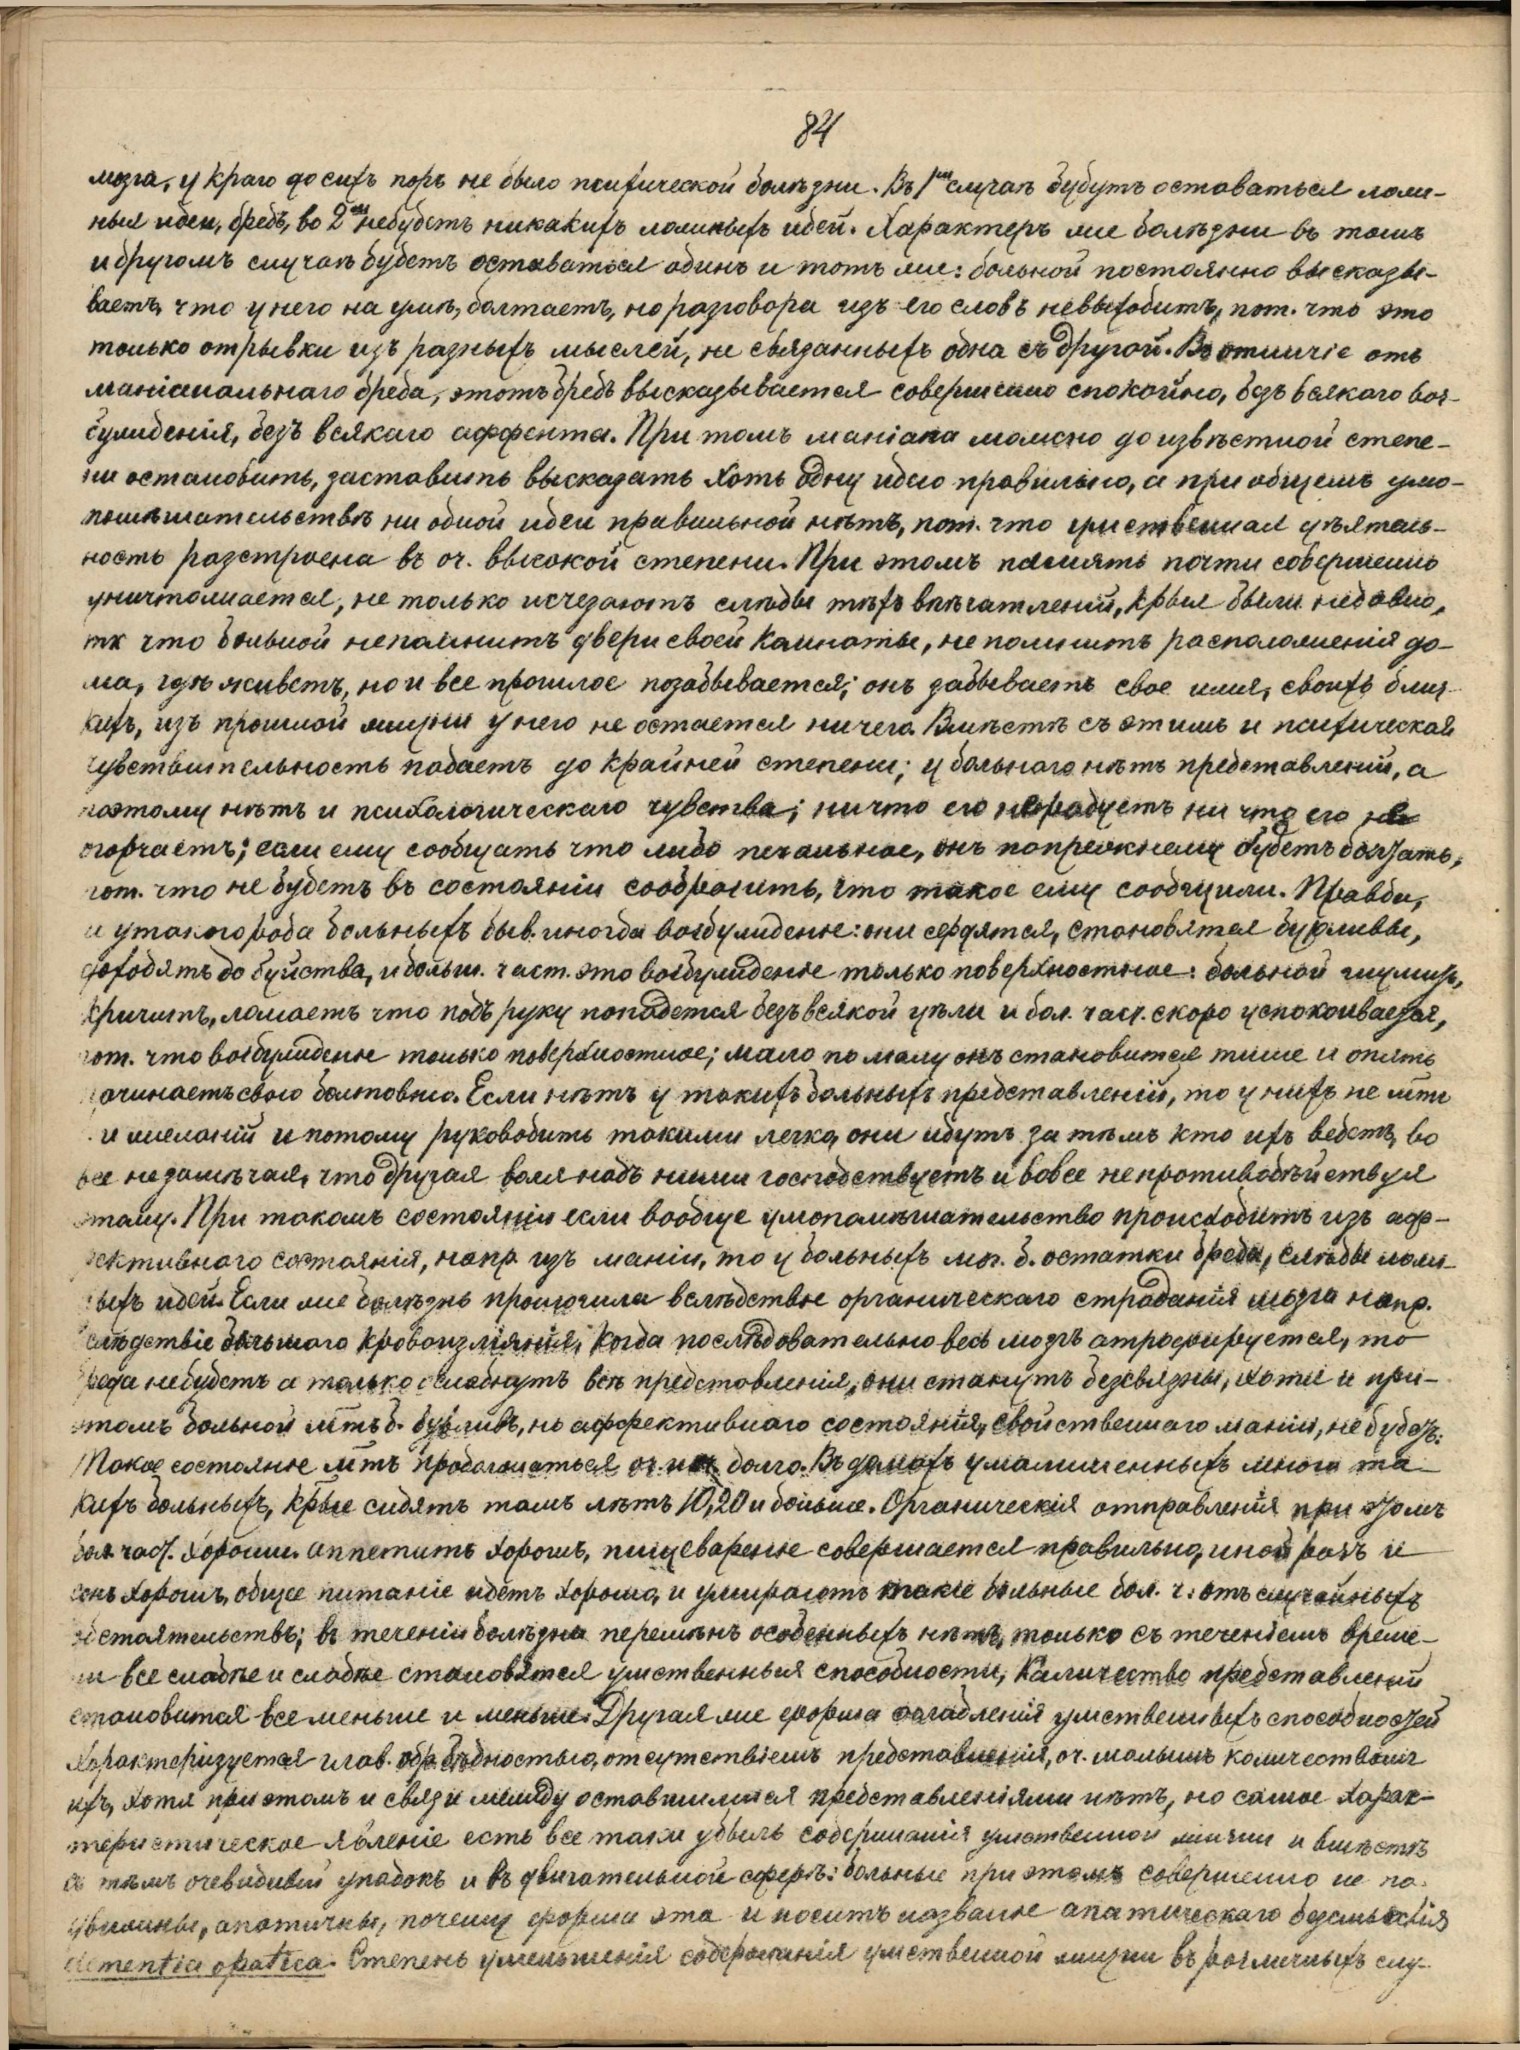 84
мозга, у краго до сихъ поръ не было психической болѣзни. Въ 1мъ случаѣ будутъ оставаться лож-
ныя идеи, бредъ, во 2мъ небудетъ никакихъ ложныхъ идей. Характеръ же болѣзни въ томъ
и другомъ случаѣ будетъ оставаться одинъ и тотъ же: больной постоянно высказы-
ваетъ, что у него на умѣ, болтаетъ, но разговора изъ его словъ невыходитъ, пот. что это
только отрывки изъ разныхъ мыслей, не связанныхъ одна съ другой. Въ отличіе отъ
маніакальнаго бреда, этотъ бредъ высказывается совершенно спокойно, безъ всякаго воз-
бужденія, безъ всякаго аффекта. При томъ маніака можно до извѣстной степе-
ни остановить, заставить высказать хоть одну идею правильно, а при общемъ умо-
помѣшательствѣ ни одной идеи правильной нѣтъ, пот. что умственная дѣятель-
ность разстроена въ оч. высокой степени. При этомъ память почти совершенно
уничтожается, не только исчезаютъ слѣды тѣхъ впечатлений, крыя были недавно,
тк что больной непомнитъ двери своей комнаты, не помнитъ расположенія до-
ма, гдѣ живетъ, но и все прошлое позабывается; онъ забываетъ свое имя, своихъ близ-
кихъ, изъ прошлой жизни у него не остается ничего. Вмѣстѣ съ этимъ и психическая
чувствительность падаетъ до крайней степени; у больнаго нѣтъ представленій, а
поэтому нѣтъ и психологическаго чувства; ничто его не радуетъ ни что его не
огорчаетъ; если ему сообщать что либо печальное, онъ попрежнему будетъ болтать,
пот. что не будетъ въ состояніи сообразить, что такое ему сообщили. Правда,
и у такого рода больныхъ быв. иногда возбужденіе: они сердятся, становятся бурливы,
доходятъ до буйства, и больш. част. это возбужденіе только поверхностное: больной шумитъ,
кричитъ, ломаетъ что подъ руку попадется безъ всякой цѣли и бол. част. скоро успокоивается,
пот. что возбужденіе только поверхностное; мало по малу онъ становится тише и опять
начинаетъ свою болтовню. Если нѣтъ у такихъ больныхъ представленій, то у нихъ не мтъ
и желаній и потому руководить такими легко, они идутъ за тѣмъ кто ихъ ведетъ, во
все незамѣчая, что другая воля надъ ними господствуетъ и вовсе непротиводѣйствуя
этому. При такомъ состояніи если вообще умопомѣшательство происходитъ изъ аф-
фективнаго состоянія, напр. изъ маніи, то у больныхъ мог. б. остатки бреда, слѣды лож-
ныхъ идей. Если же болѣзнь произошла вслѣдствіе органическаго страданія мозга напр.
вслѣдствіе большого кровоизліянія, когда послѣдовательно весь мозгъ атрофируется, то
бреда небудетъ а только ослабнутъ всѣ представленія, они станутъ безсвязны, хотя и при-
этомъ больной мтъ б. бурливъ, но аффективнаго состоянія, свойственнаго маніи, не будетъ.
Такое состояніе мтъ продолжаться долго. Въ домахъ умалишенныхъ много та-
кихъ больныхъ, крые сидятъ тамъ лѣтъ 10, 20 и больше. Органическія отправленія при этомъ
бол. част. хороши. аппетитъ хорошъ, пищевареніе совершается правильно, иной разъ и
сонъ хорошъ, общее питаніе идетъ хорошо, и умираютъ такіе больные бол. ч: отъ случайныхъ
обстоятельствъ; въ теченіи болѣзни перемѣнъ особенныхъ нѣтъ, только съ теченіемъ време-
ни все слабѣе и слабѣе становятся умственныя способности, количество представленій
становится все меньше и меньше. Другая же форма ослабленія умственныхъ способностей
характеризуется глав. обр. бѣдностью, отсутствіемъ представленія, оч. малымъ количествомъ
ихъ, хотя при этомъ и связи между оставшимися представленіями нѣтъ, но самое харак-
теристическое явленіе есть все таки убыль содержанія умственной жизни и вмѣстѣ
съ тѣмъ очевидный упадокъ и въ двигательной сферѣ: больные при этомъ совершенно не по-
движны, апатичны, почему форма эта и носитъ названіе апатическаго безсмыслія
dementia apatica. Степень уменьшенія содержанія умственной жизни въ различныхъ слу-